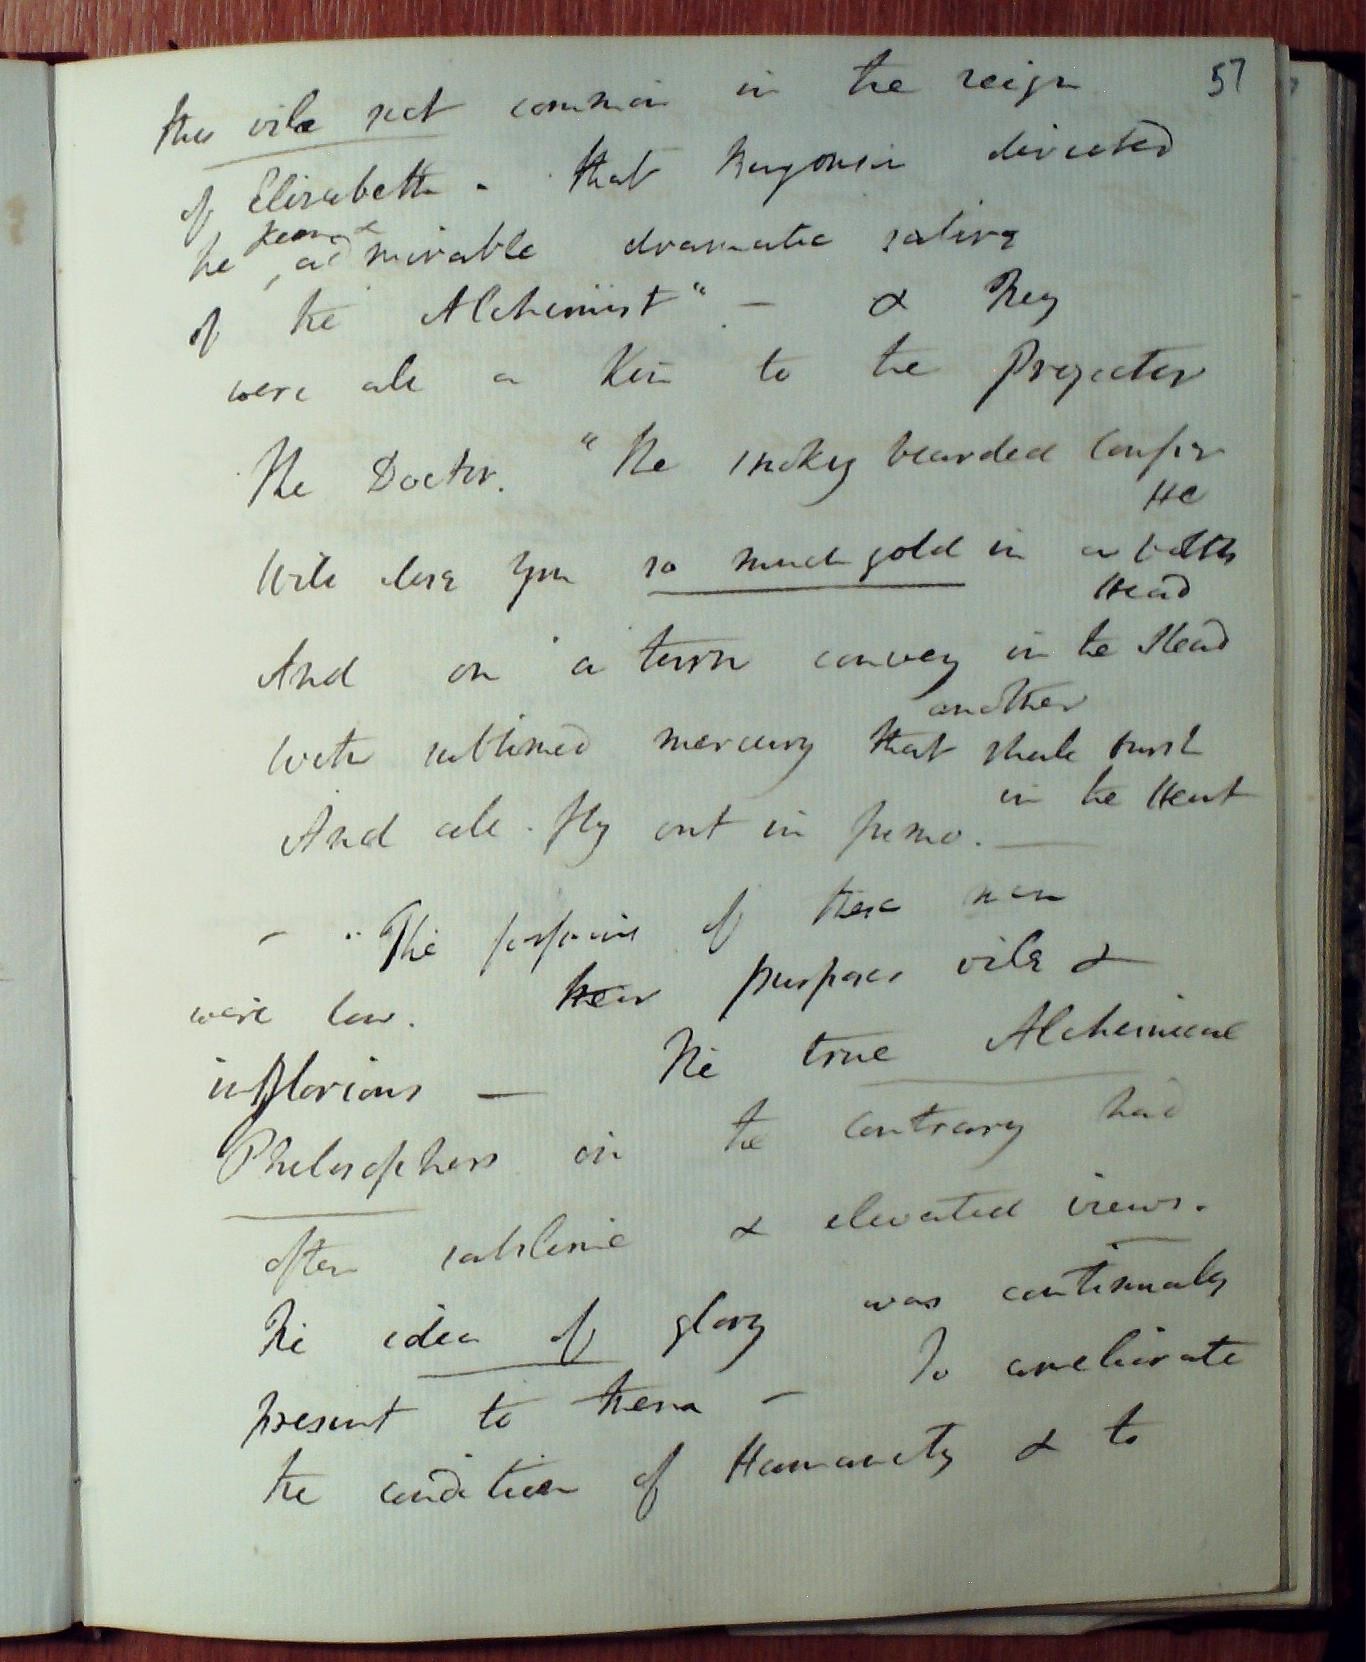 57
this vile sect common in the reign
of Elizabeth. that Benjonson directed
he admirable dramatic satire
of the Alchemist" — & they
were all a kin to the Projector
The Doctor. "The smokey bearded
He
Will close you so much gold in a bolts
Head
And on a turn convey in the Stead
another
With sublimed mercury that shall burst
in the Heat
And all fly out in fumo. —
— "The of these men
were low. their purposes vile &
inglorious — The true Alchemical
Philosophers on the contrary had
often sublime & elevated views.
The idea of glory was continually
present to them — To ameliorate
the condition of Humanity & to